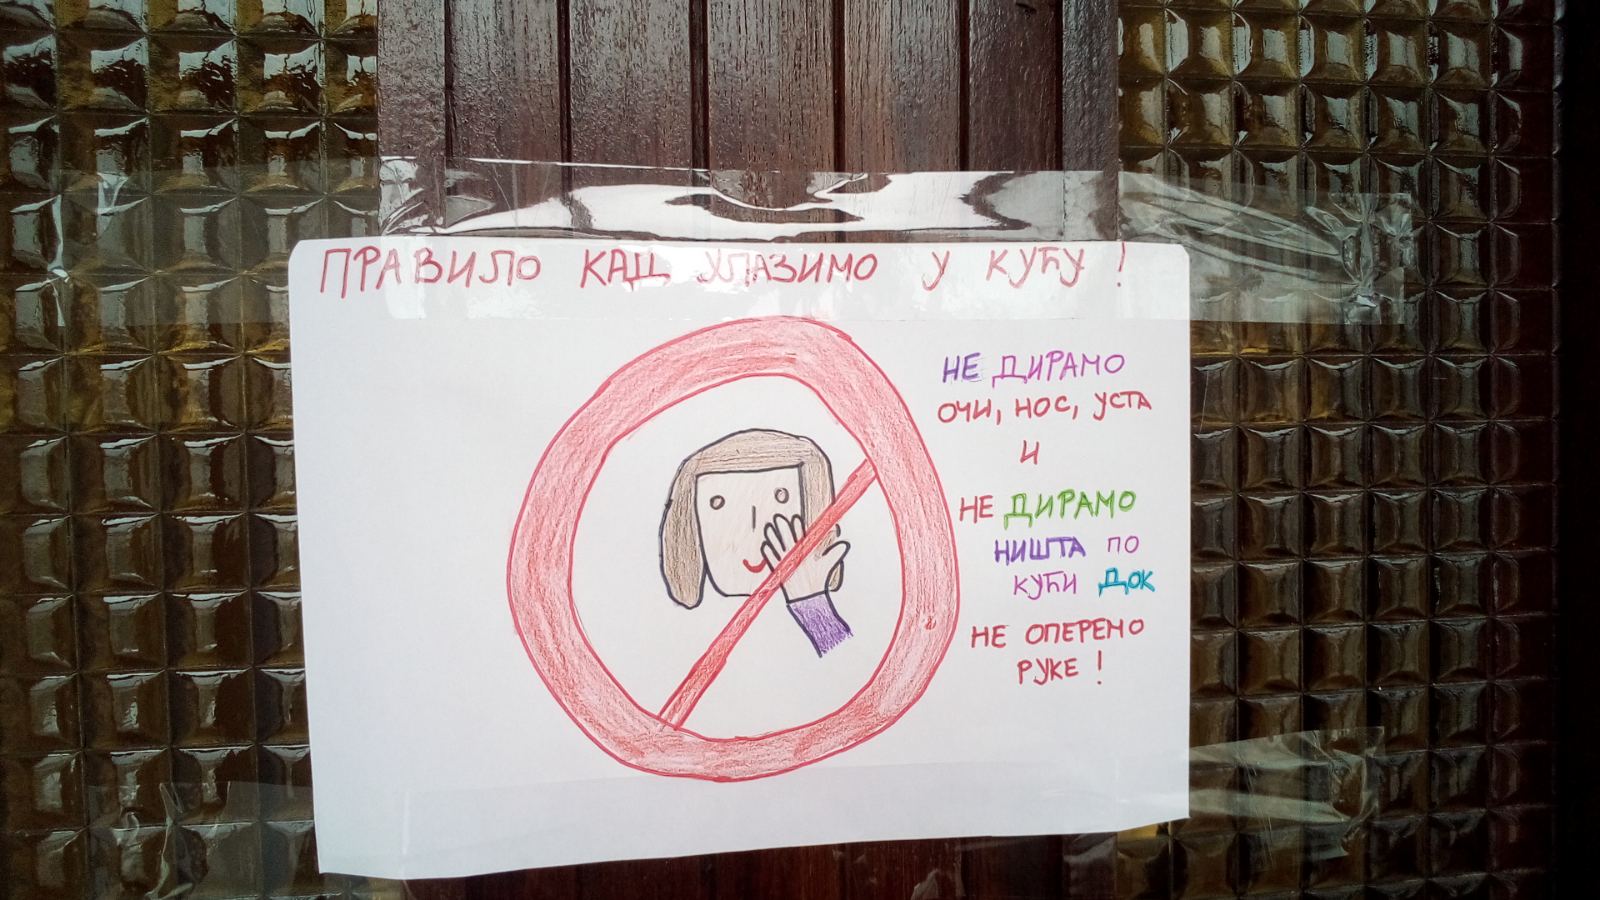 ПРАВИЛО КАД УЛАЗИМО У КУЋУ!
НЕ ДИРАМО
ОЧИ, НОС, УСТА
И
НЕ ДИРАМО
НИШТА ПО
КУЋИ ДОК
НЕ ОПЕРЕМО
РУКЕ!